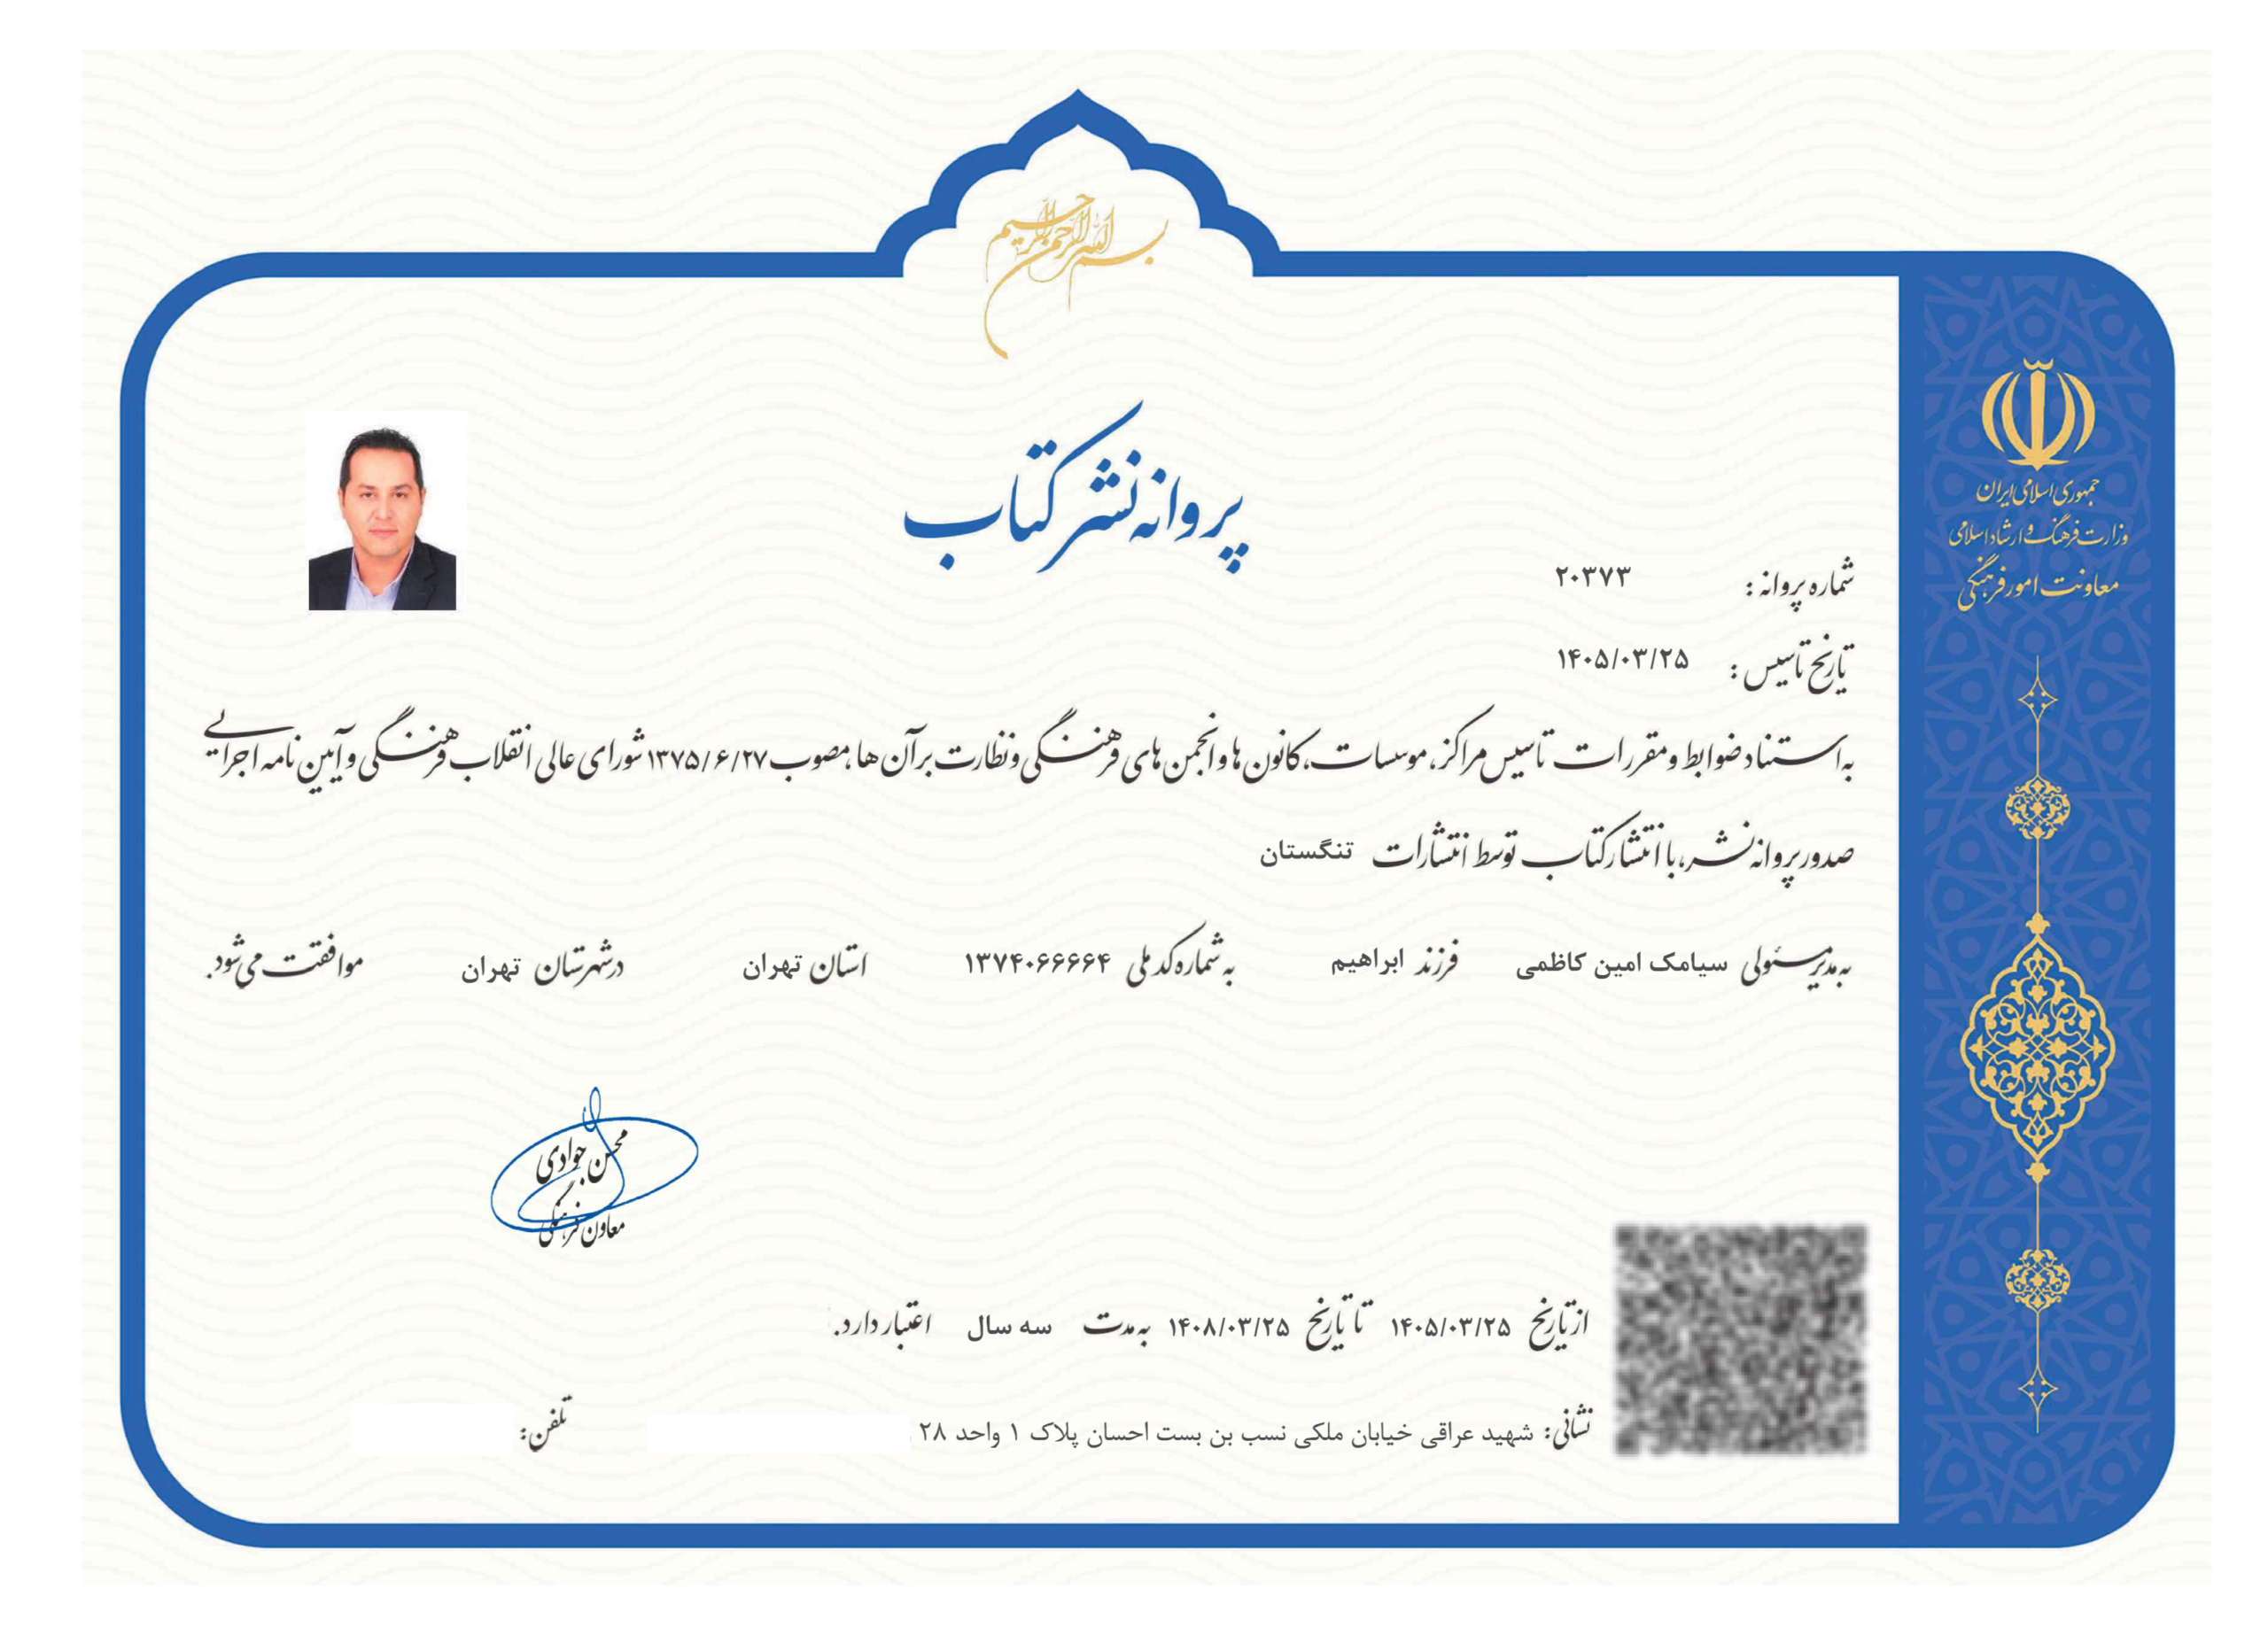 بسم الله الرحمن الرحیم
جمهوری اسلامی ایران
وزارت فرهنگ و ارشاد اسلامی
معاونت امور فرهنگی
پروانه نشر کتاب
شماره پروانه : ۲۰۳۷۳
تاریخ تاسیس : ۱۴۰۵/۰۳/۲۵
به استناد ضوابط و مقررات تاسیس مراکز، موسسات، کانون ها و انجمن های فرهنگی و نظارت بر آن ها، مصوب ۱۳۷۵/۶/۲۷ شورای عالی انقلاب فرهنگی و آیین نامه اجرایی
صدور پروانه نشر، با انتشار کتاب توسط انتشارات تنگستان
به مدیر مسئولی سیامک امین کاظمی فرزند ابراهیم به شماره کد ملی ۱۳۷۴۰۶۶۶۶۴ استان تهران در شهرستان تهران موافقت می شود.
محسن جوادی
معاون فرهنگی
از تاریخ ۱۴۰۵/۰۳/۲۵ تا تاریخ ۱۴۰۸/۰۳/۲۵ به مدت سه سال اعتبار دارد.
نشانی: شهید عراقی خیابان ملکی نسب بن بست احسان پلاک ۱ واحد ۲۸ تلفن: